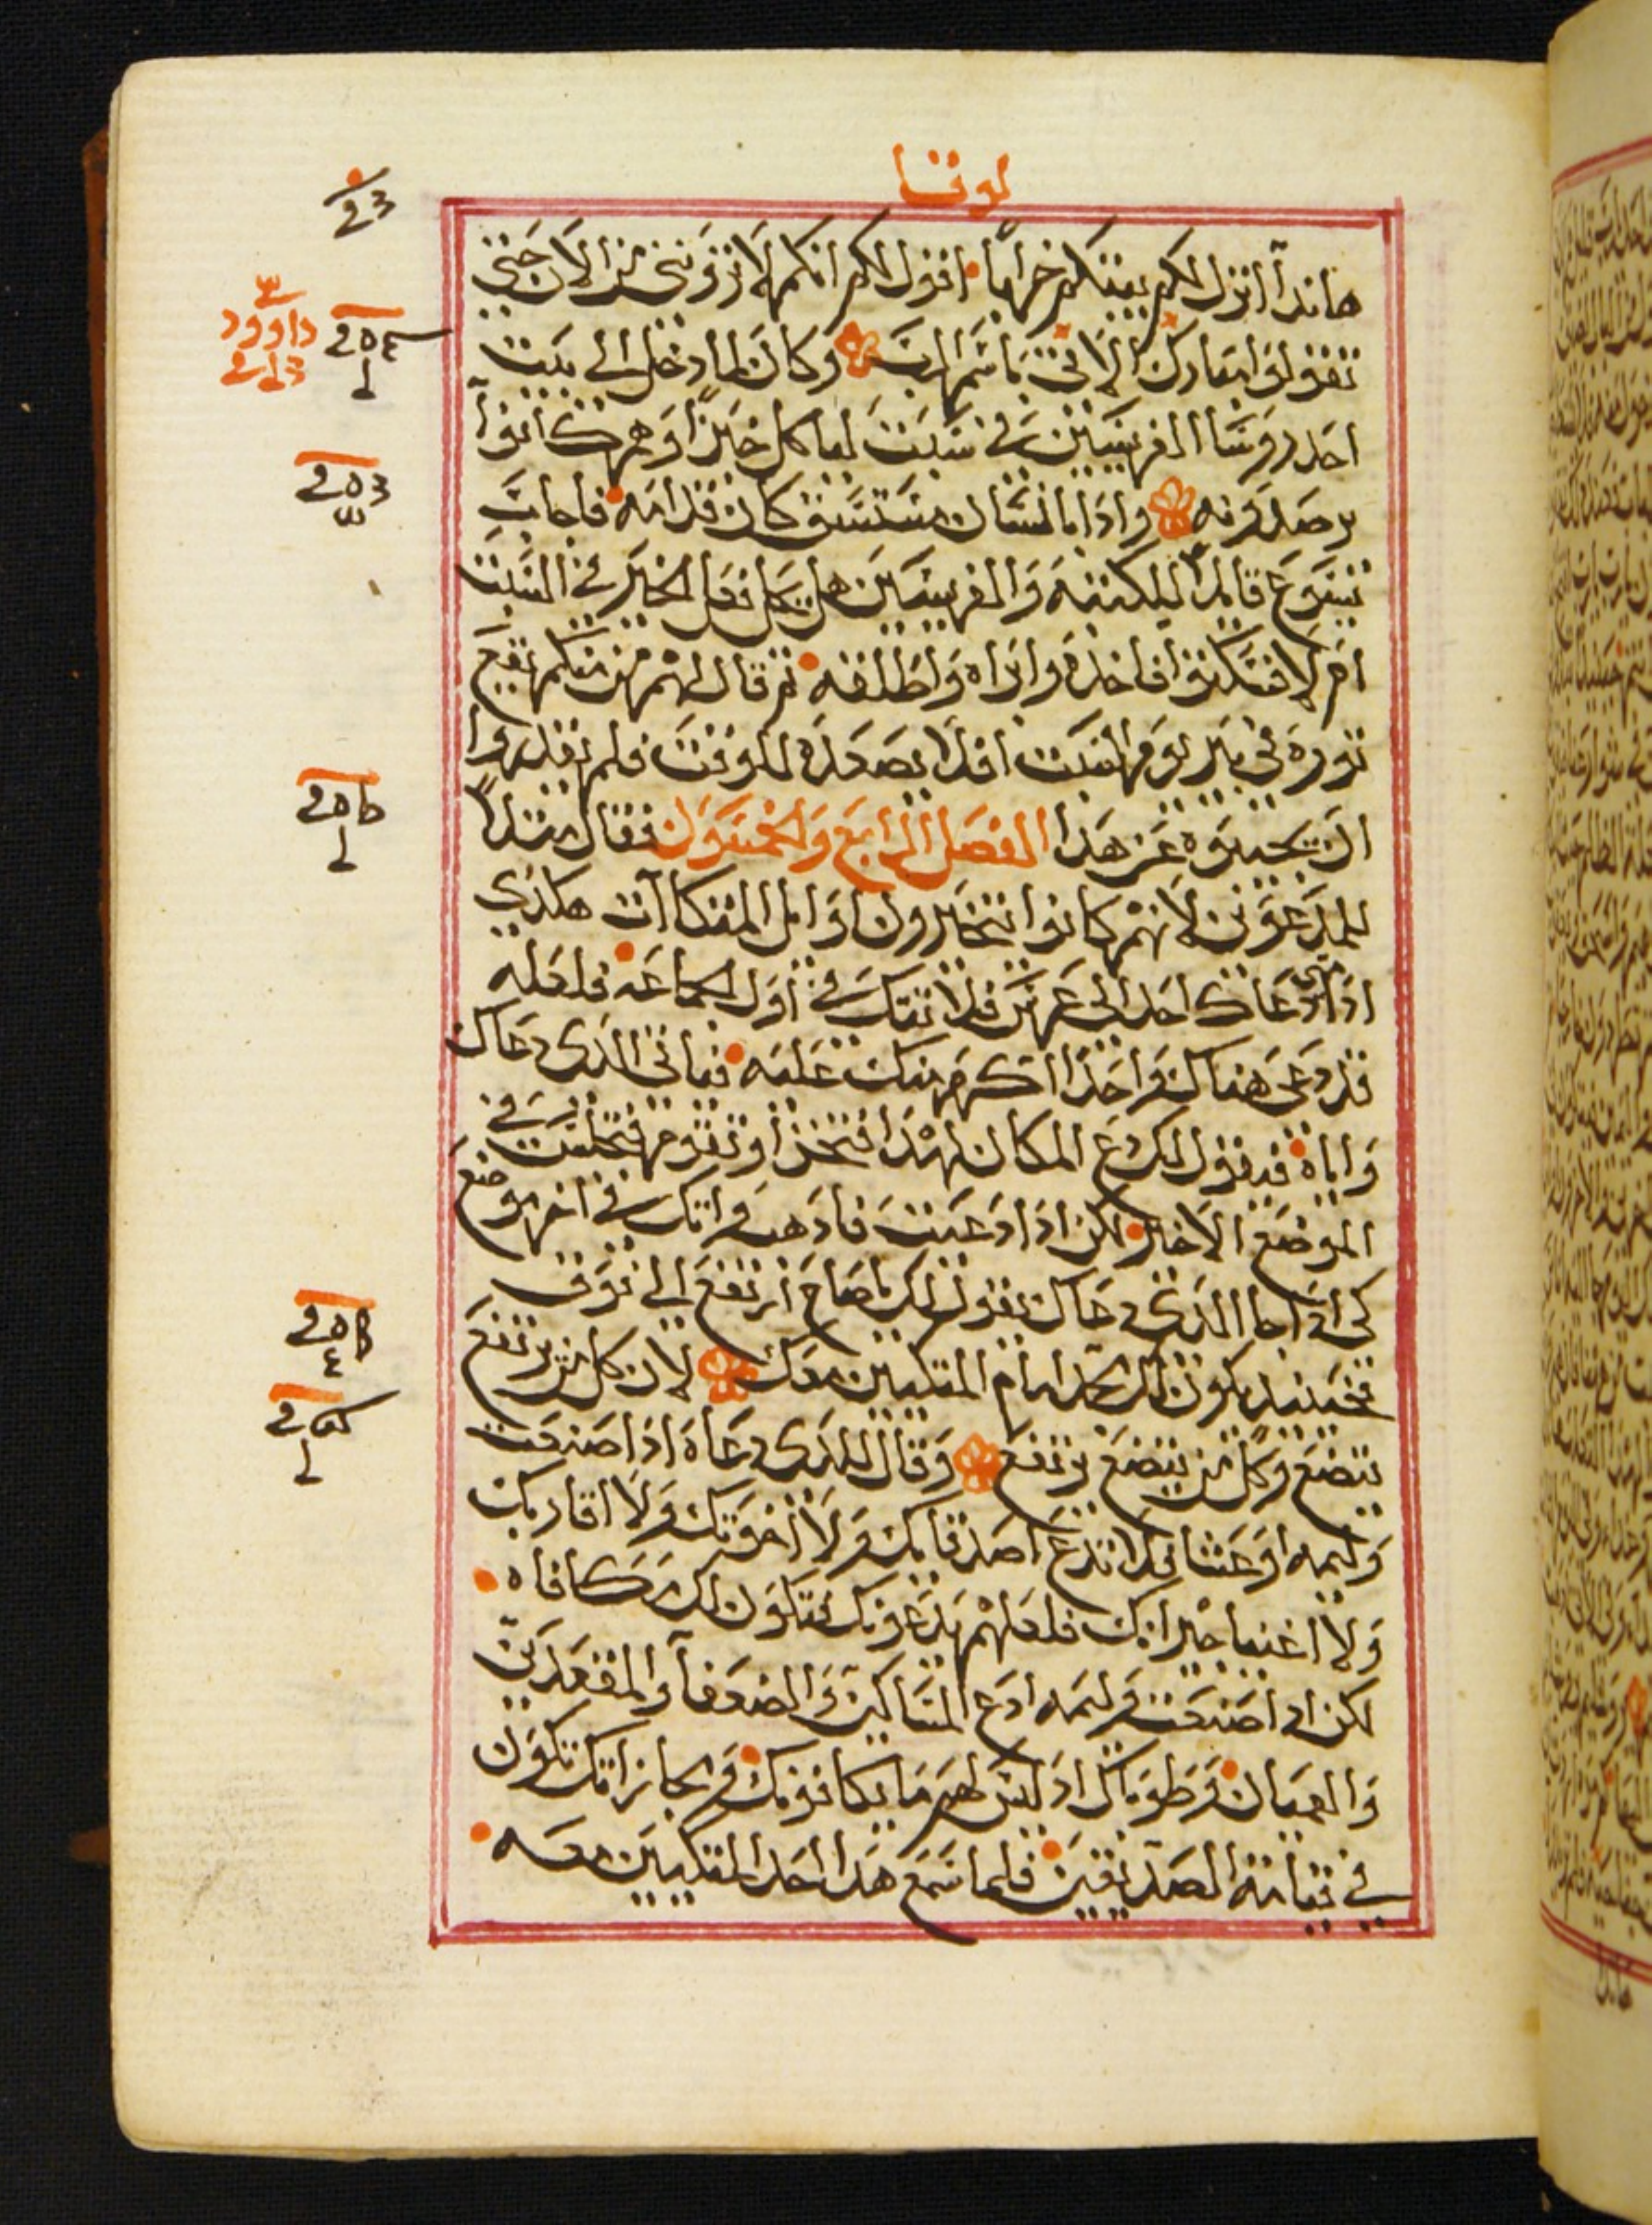 لوقا
هانذا اترك لكم بيتكم خرابا اقول لكم انكم لا تروننى من الان حتى
تقولوا مبارك الاتى باسم الرب وكان لما دخل الى بيت
احد روسا الفريسيين فى سبت لياكل خبزا وهم كانوا
يرصدونه واذا بانسان مستسق كان قدامه فاجاب
يسوع قايلا للكتبه والفريسيين هل يحل فعل الخير فى السبت
ام لا فسكتوا فاخذه وابراه واطلقه ثم قال لهم من منكم يقع
ثوره فى بير يوم السبت افلا يصعده للوقت فلم يقدروا
ان يجيبوه عن هذا الفصل الرابع والخمسون فقال مثلا
للمدعوين لانهم كانوا يتخيرون اوايل المتكاات هكذى
اذا دعاك احد الى عرس فلا تتك فى اول الجماعه فلعله
قد دعى هناك واحدا اكرم منك عليه فياتى الذى دعاك
واياه فيقول لك دع المكان لهذا فتخزا وتقوم فتجلس فى
الموضع الاخير لكن اذا دعيت فاذهب واتك فى اخر موضع
كى اذا جا الذى دعاك يقول لك يا صاح ارتفع الى فوق
فحينيذ يكون لك المجد امام المتكيين معك لان كل من يرتفع
يتضع وكل من يتضع يرتفع وقال للذى دعاه اذا صنعت
وليمه او عشا فلا تدع اصدقايك ولا اخوتك ولا اقاربك
ولا اغنيا جيرانك فلعلهم يدعونك فتكون لك مكافاه
لكن اذا صنعت وليمه ادع المساكين والضعفا والمقعدين
والعميان وطوباك اذ ليس لهم ما يكافونك ومجازاتك تكون
فى قيامة الصديقين فلما سمع هذا احد المتكيين معه
داوود